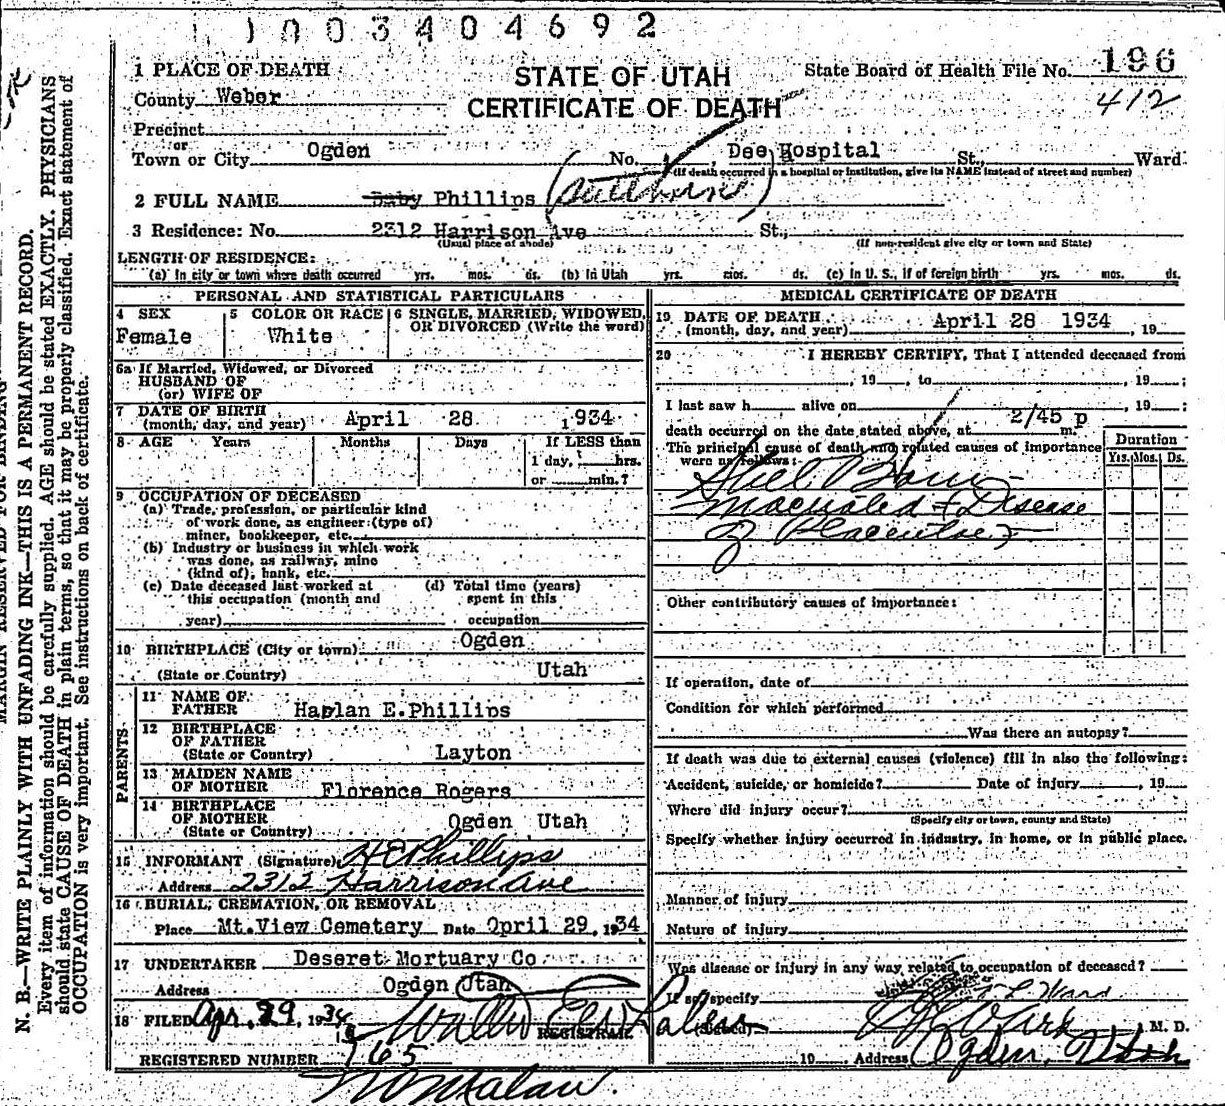 1003404692
1 PLACE OF DEATH
STATE OF UTAH
State Board of Health File No. 196
County Weber
CERTIFICATE OF DEATH
412
Precinct
or
Town or City Ogden No. , Dee Hospital St., Ward
(If death occurred in a hospital or institution, give its NAME instead of street and number)
2 FULL NAME Baby Phillips (Stillborne)
3 Residence: No. 2312 Harrison Ave St.,
(Usual place of abode) (If non-resident give city or town and State)
LENGTH OF RESIDENCE:
(a) In city or town where death occurred yrs. mos. ds. (b) In Utah yrs. mos. ds. (c) In U. S., if of foreign birth yrs. mos. ds.
PERSONAL AND STATISTICAL PARTICULARS
4 SEX 5 COLOR OR RACE 6 SINGLE, MARRIED, WIDOWED,
OR DIVORCED (Write the word)
Female White
6a If Married, Widowed, or Divorced
HUSBAND OF
(or) WIFE OF
7 DATE OF BIRTH
(month, day, and year) April 28 1934
8 AGE Years Months Days If LESS than
1 day, hrs.
or min.?
9 OCCUPATION OF DECEASED
(a) Trade, profession, or particular kind
of work done, as engineer (type of)
miner, bookkeeper, etc.
(b) Industry or business in which work
was done, as railway, mine
(kind of), bank, etc.
(c) Date deceased last worked at (d) Total time (years)
this occupation (month and spent in this
year) occupation
10 BIRTHPLACE (City or town) Ogden
(State or Country) Utah
PARENTS
11 NAME OF
FATHER Harlan E.Phillips
12 BIRTHPLACE
OF FATHER
(State or Country) Layton
13 MAIDEN NAME
OF MOTHER Florence Rogers
14 BIRTHPLACE
OF MOTHER
(State or Country) Ogden Utah
15 INFORMANT (Signature) H E Phillips
Address 2312 Harrison Ave
16 BURIAL, CREMATION, OR REMOVAL
Place Mt.View Cemetery Date April 29, 1934
17 UNDERTAKER Deseret Mortuary Co
Address Ogden Utah
18 FILED Apr. 29, 1934
REGISTRAR
REGISTERED NUMBER 165
MEDICAL CERTIFICATE OF DEATH
19 DATE OF DEATH
(month, day, and year) April 28 1934 , 19
20 I HEREBY CERTIFY, That I attended deceased from
, 19 , to , 19 ;
I last saw h alive on , 19 ;
death occurred on the date stated above, at 2/45 p m.
The principal cause of death and related causes of importance
were as follows:
Duration
Yrs. Mos. Ds.
Still Born
Macerated + Disease
of Placentae
Other contributory causes of importance:
If operation, date of
Condition for which performed
Was there an autopsy?
If death was due to external causes (violence) fill in also the following:
Accident, suicide, or homicide? Date of injury , 19
Where did injury occur?
(Specify city or town, county and State)
Specify whether injury occurred in industry, in home, or in public place.
Manner of injury
Nature of injury
Was disease or injury in any way related to occupation of deceased?
If so, specify
(Signed) M. D.
19 Address Ogden, Utah
MARGIN RESERVED FOR BINDING
N. B.—WRITE PLAINLY WITH UNFADING INK—THIS IS A PERMANENT RECORD.
Every item of information should be carefully supplied. AGE should be stated EXACTLY. PHYSICIANS
should state CAUSE OF DEATH in plain terms, so that it may be properly classified. Exact statement of
OCCUPATION is very important. See instructions on back of certificate.